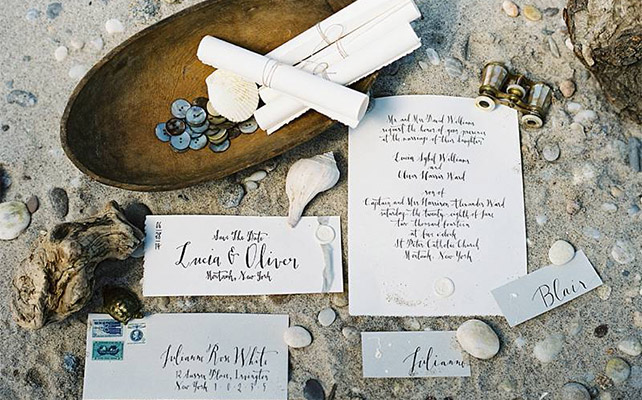 Mr and Mrs David Williams
request the honor of your presence
at the marriage of their daughter
Lucia Williams
and
Oliver Harris Ward
son of
Captain and Mrs Harrison Alexander Ward
saturday the twenty-eighth of June
two thousand fourteen
at five o'clock
St Peter Catholic Church
Montauk, New York
Save The Date
Lucia & Oliver
Montauk, New York
Blair
Julianne
Julianne Rose White
12 Sussex Place, Lexington
New York 10235